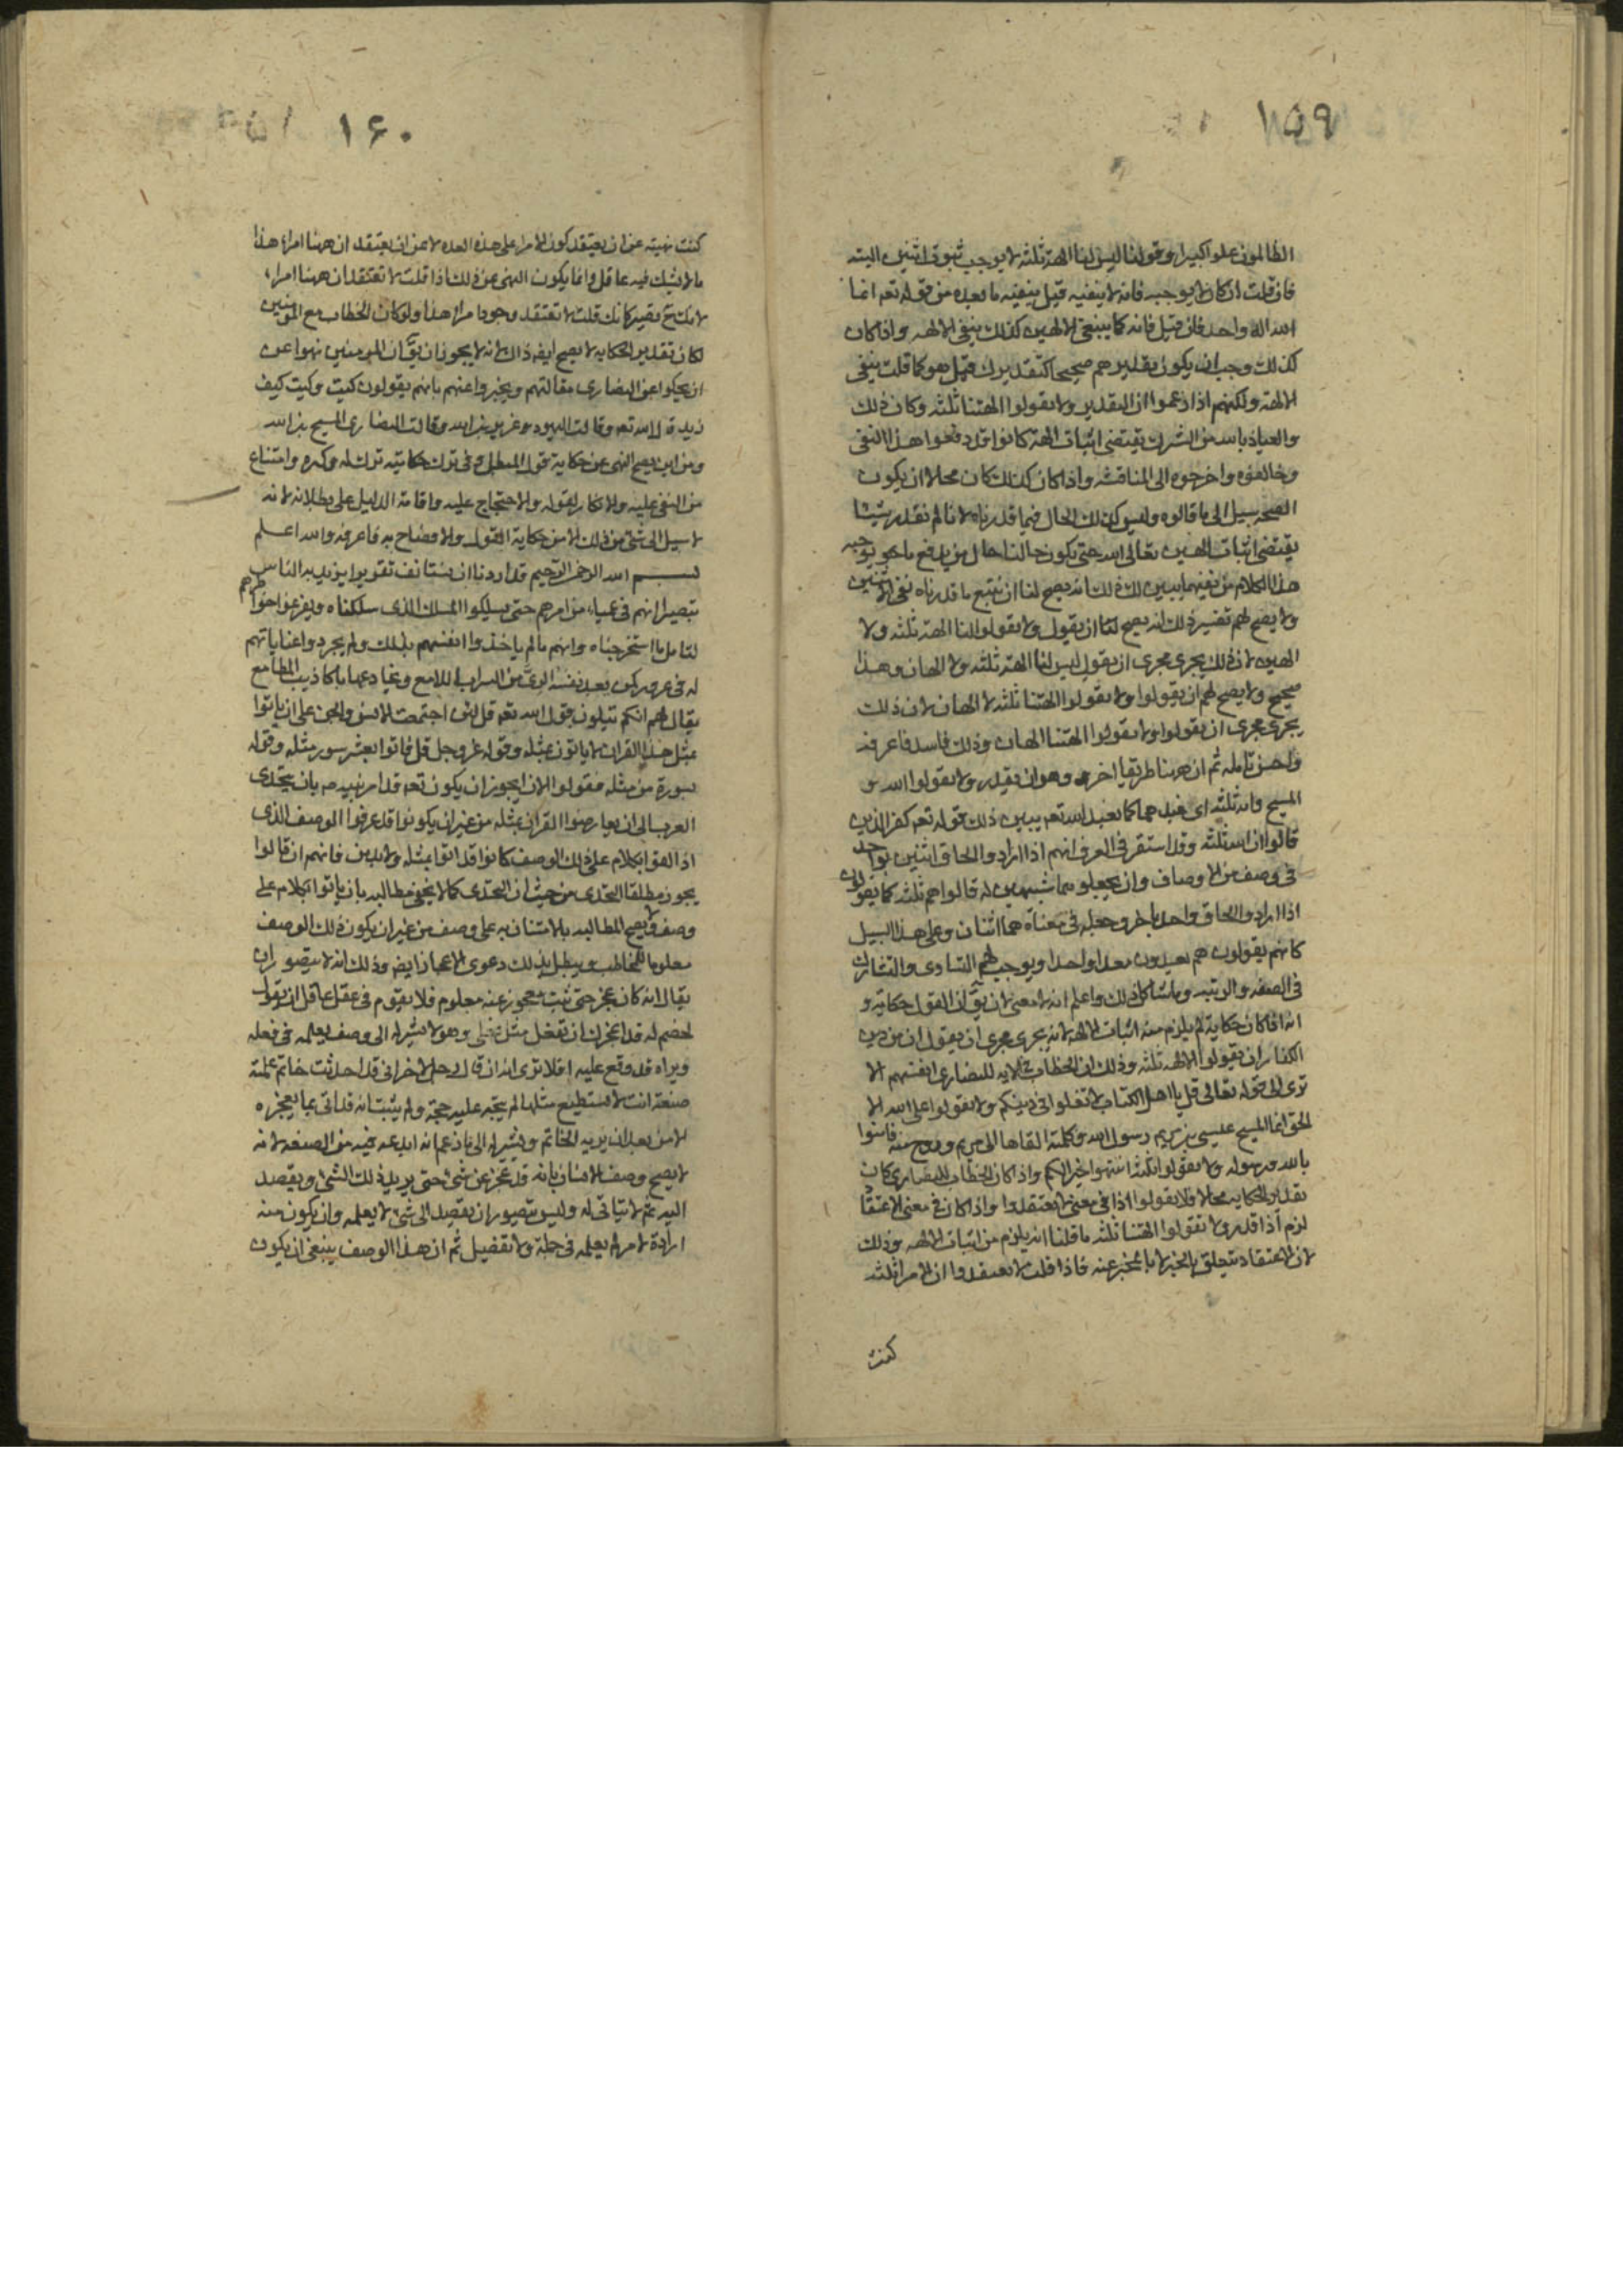 ١٥٩
الظالمون علوا كبيرا وقولنا ليس لنا الهة ثلثه لا يوجب ثبوت اثنين البته
فان قلت ان كان لا يوجبه فانه لا ينفيه قيل ينفيه ما بعده من قوله تعه انما
الله اله واحد فان قيل فانه كما ينبغى الالهين كذلك ينفى الالهه واذا كان
كذلك وجب ان يكون تقديرهم صحيحا كتقديرك قيل هو كما قلت ينفى
الالهة ولكنهم اذا زعموا ان التقدير ولا تقولوا الهتنا ثلثه وكان ذلك
والعياذ بالله من الشرك يقتضى اثبات الهة كانوا قد دفعوا هذا النفى
وخالفوه واخرجوه الى المناقشه واذا كان كذلك كان محالا ان يكون
الصحه سبيل الى ما قالوه وليس كذلك الحال فيما قدرناه لانا لم نقدر شيئا
يقتضى اثبات الهين تعالى الله حتى يكون حالنا حال من يدفع ما يوجبه
هذا الكلام من نفيهما يبين لك ذلك انه يصح لنا ان نتبع ما قدرناه نفى الاثنين
ولا يصح لهم تفسير ذلك انه يصح لنا ان يقول ولا تقولوا لنا الهة ثلثه ولا
الهين لان ذلك يجرى مجرى ان يقول ليس لنا الهة ثلثه ولا الهان وهذا
صحيح ولا يصح لهم ان يقولوا ولا تقولوا الهتنا ثلثه لا الهان لان ذلك
يجرى مجرى ان يقولوا ولا تقولوا الهتنا الهان وذلك فاسد فاعرفه
واحسن تامله ثم ان ههنا طريقا اخر وهو ان يقدر ولا تقولوا الله و
المسيح وامه ثلثه اى نعبدهما كما نعبد الله تعه يبين ذلك قوله تعه كفر الذين
قالوا ان الله ثلثه وقد استقر فى العرف انهم اذا ارادوا الحاق اثنين بواحد
فى وصف من الاوصاف وان يجعلوهما شبيهين له قالوا هم ثلثه كما يقولون
اذا ارادوا الحاق واحد باخر وجعله فى معناه هما اثنان وعلى هذا السبيل
كانهم يقولون هم يعبدون معدا واحدا ويوجب لهم التساوى والتشارك
فى الصفه والرتبه وما شاكل ذلك واعلم انه لا معنى لان يقّ ان القول حكاية و
انه اذا كان حكاية لم يلزم منه اثبات الالهه لانه يجرى مجرى ان يقول ان من دين
الكفار ان يقولوا الالهه ثلثه وذلك ان الخطاب فى الايه للنصارى انفسهم الا
ترى الى قوله تعالى قل يا اهل الكتاب لا تغلوا فى دينكم ولا تقولوا على الله الا
الحق انما المسيح عيسى بن مريم رسول الله وكلمته القاها الى مريم وروح منه فامنوا
بالله ورسوله ولا تقولوا ثلثه انتهوا خيرا لكم واذا كان الخطاب للنصارى كان
تقدير الحكايه محالا فلا تقولوا اذا فى معنى لا تعتقدوا واذا كان فى معنى الاعتقاد
لزم اذا قدر ولا تقولوا الهتنا ثلثه ما قلنا انه يلزم من اثبات الالهه وذلك
لان الاعتقاد يتعلق بالخبر لا بالمخبر عنه فاذا قلت لا تعتقدوا ان الامرا ثلثه
كنت
١۶٠
كنت نهيته عن ان يعتقد كون الامرا على هذه العده لا عن ان يعتقد ان ههنا امراء هذا
ما لا يشك فيه عاقل وانما يكون النهى عن ذلك اذا قلت لا تعتقد ان ههنا امراء
لانك ح تصير كانك قلت لا تعتقد وجود امراء هذا ولو كان الخطاب مع المومنين
لكان تقدير الحكايه لا يصح ايضه ذاك لانه لا يجوز ان يقّ ان المومنين نهوا عن
ان يحكوا عن النصارى مقالتهم ويخبروا عنهم بانهم يقولون كيت وكيت كيف
وقد قال الله تعه وقالت اليهود عزير بن الله وقالت النصارى المسيح بن الله
ومن اين يصح النهى عن حكاية قول المبطل وفى ترك حكايته ترك له وكفره وامتناع
من النفى عليه والانكار لقوله والاحتجاج عليه واقامة الدليل على بطلانه لانه
لا سبيل الى شئ من ذلك الا من حكاية القول والافصاح به فاعرفه والله اعلم
بسم الله الرحمن الرحيم قد اردنا ان نستانف تقريرا يزيد به الناس
تبصيرا انهم فى عمياء من امرهم حتى يسلكوا المسلك الذى سلكناه ويفرغوا خواطرهم
لتامل ما استخرجناه وانهم ما لم ياخذوا انفسهم بذلك ولم يجردوا عناياتهم
له فى غرور كمن يعد نفسه الرىّ من السراب اللامع ويخادعها باكاذيب المطامع
يقال لهم انكم تتلون قول الله تعه قل لئن اجتمعت الانس والجن على ان ياتوا
بمثل هذا القران لا ياتون بمثله وقوله عز وجل قل فاتوا بعشر سور مثله وقوله
بسورة من مثله فقولوا الان ايجوز ان يكون تعه قد امر نبيه صه بان يتحدى
العرب الى ان يعارضوا القران بمثله من غير ان يكونوا قد عرفوا الوصف الذى
اذا اتوا بكلام على ذلك الوصف كانوا قد اتوا بمثله ولا بد من فانهم ان قالوا
يجوز بطلقا التحدى من حيث ان التحدى كما لا يخفى مطالبه بان ياتوا بكلام على
وصف ولا يصح المطالبه بالاتيان به على وصف من غير ان يكون ذلك الوصف
معلوما للمخاطب ويبطل بذلك دعوى الاعجاز ايضه وذلك انه لا يتصور ان
يقال انه كان عجز حتى يثبت معجوز عنه معلوم فلا يقوم فى عقل عاقل ان يقول
لخصم له قد اعجزك ان تفعل مثل فعلى وهو لا يشير له الى وصف يعلمه فى فعله
ويراه قد وقع عليه افلا ترى انه ان قال رجل لاخر انى قد احدثت خاتم عملته
صنعة انت لا تستطيع مثلها لم يتجه عليه حجة ولم يثبت انه قد اتى بما يعجزه
الا من بعد ان يريه الخاتم ويشير له الى ما زعم انه ابدعه فيه من الصنعه لانه
لا يصح وصف الانسان بانه قد عجز عن شئ حتى يريد ذلك الشئ ويقصد
اليه ثم لا يتاتى له وليس يتصور ان يقصد الى شئ لا يعلمه وان يكون منه
ارادة لامر لم يعلمه فى جملة ولا تفصيل ثم ان هذا الوصف ينبغى ان يكون